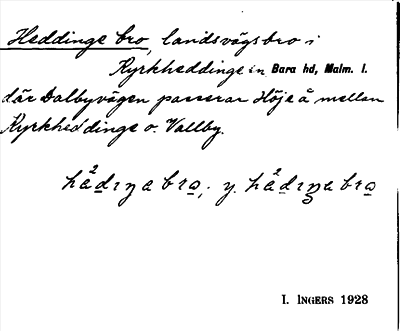 Heddinge bro, landsvägsbro i
Kyrkheddinge sn Bara hd, Malm. l.
där Dalbyvägen passerar Höje å mellan
Kyrkheddinge o. Vallby.
I. INGERS 1928